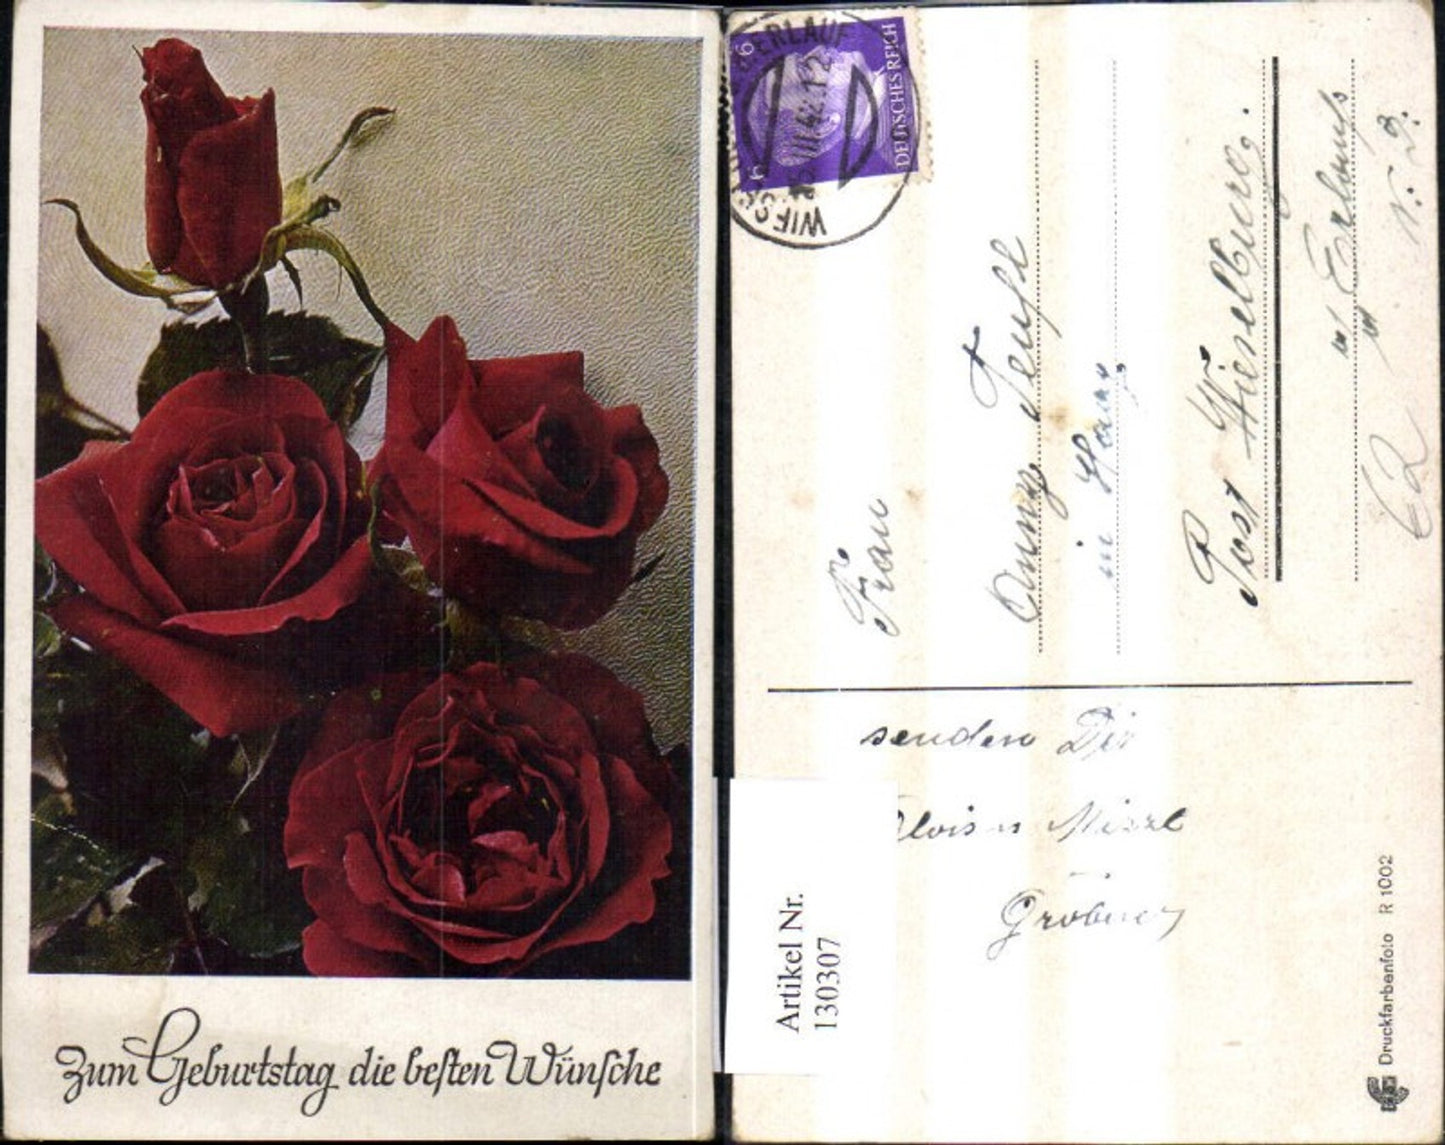 Zum Geburtstag die besten Wünsche
6
6
DEUTSCHES REICH
ERLAUF
WIES
Frau
Anny Teufl
in Haag
Post Wieselburg.
Erlauf
N. D.
senden Dir
Alois u Mizzl
Gröbner
Artikel Nr.
130307
Druckfarbenfoto R 1002